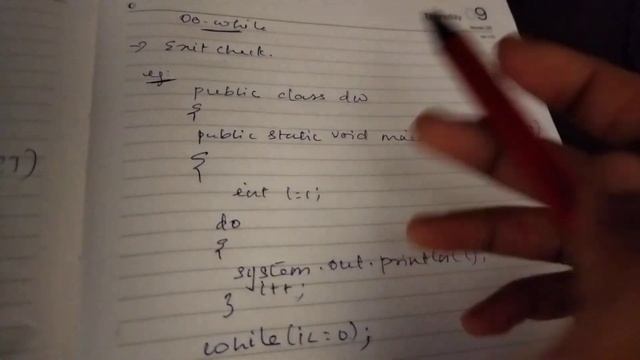 Thursday 9
Do-while
→ Exit check.
eg:
public class dw
{
public static void
{
int i=1;
do
{
system.out.println(i);
i++;
}
while(i<=0);